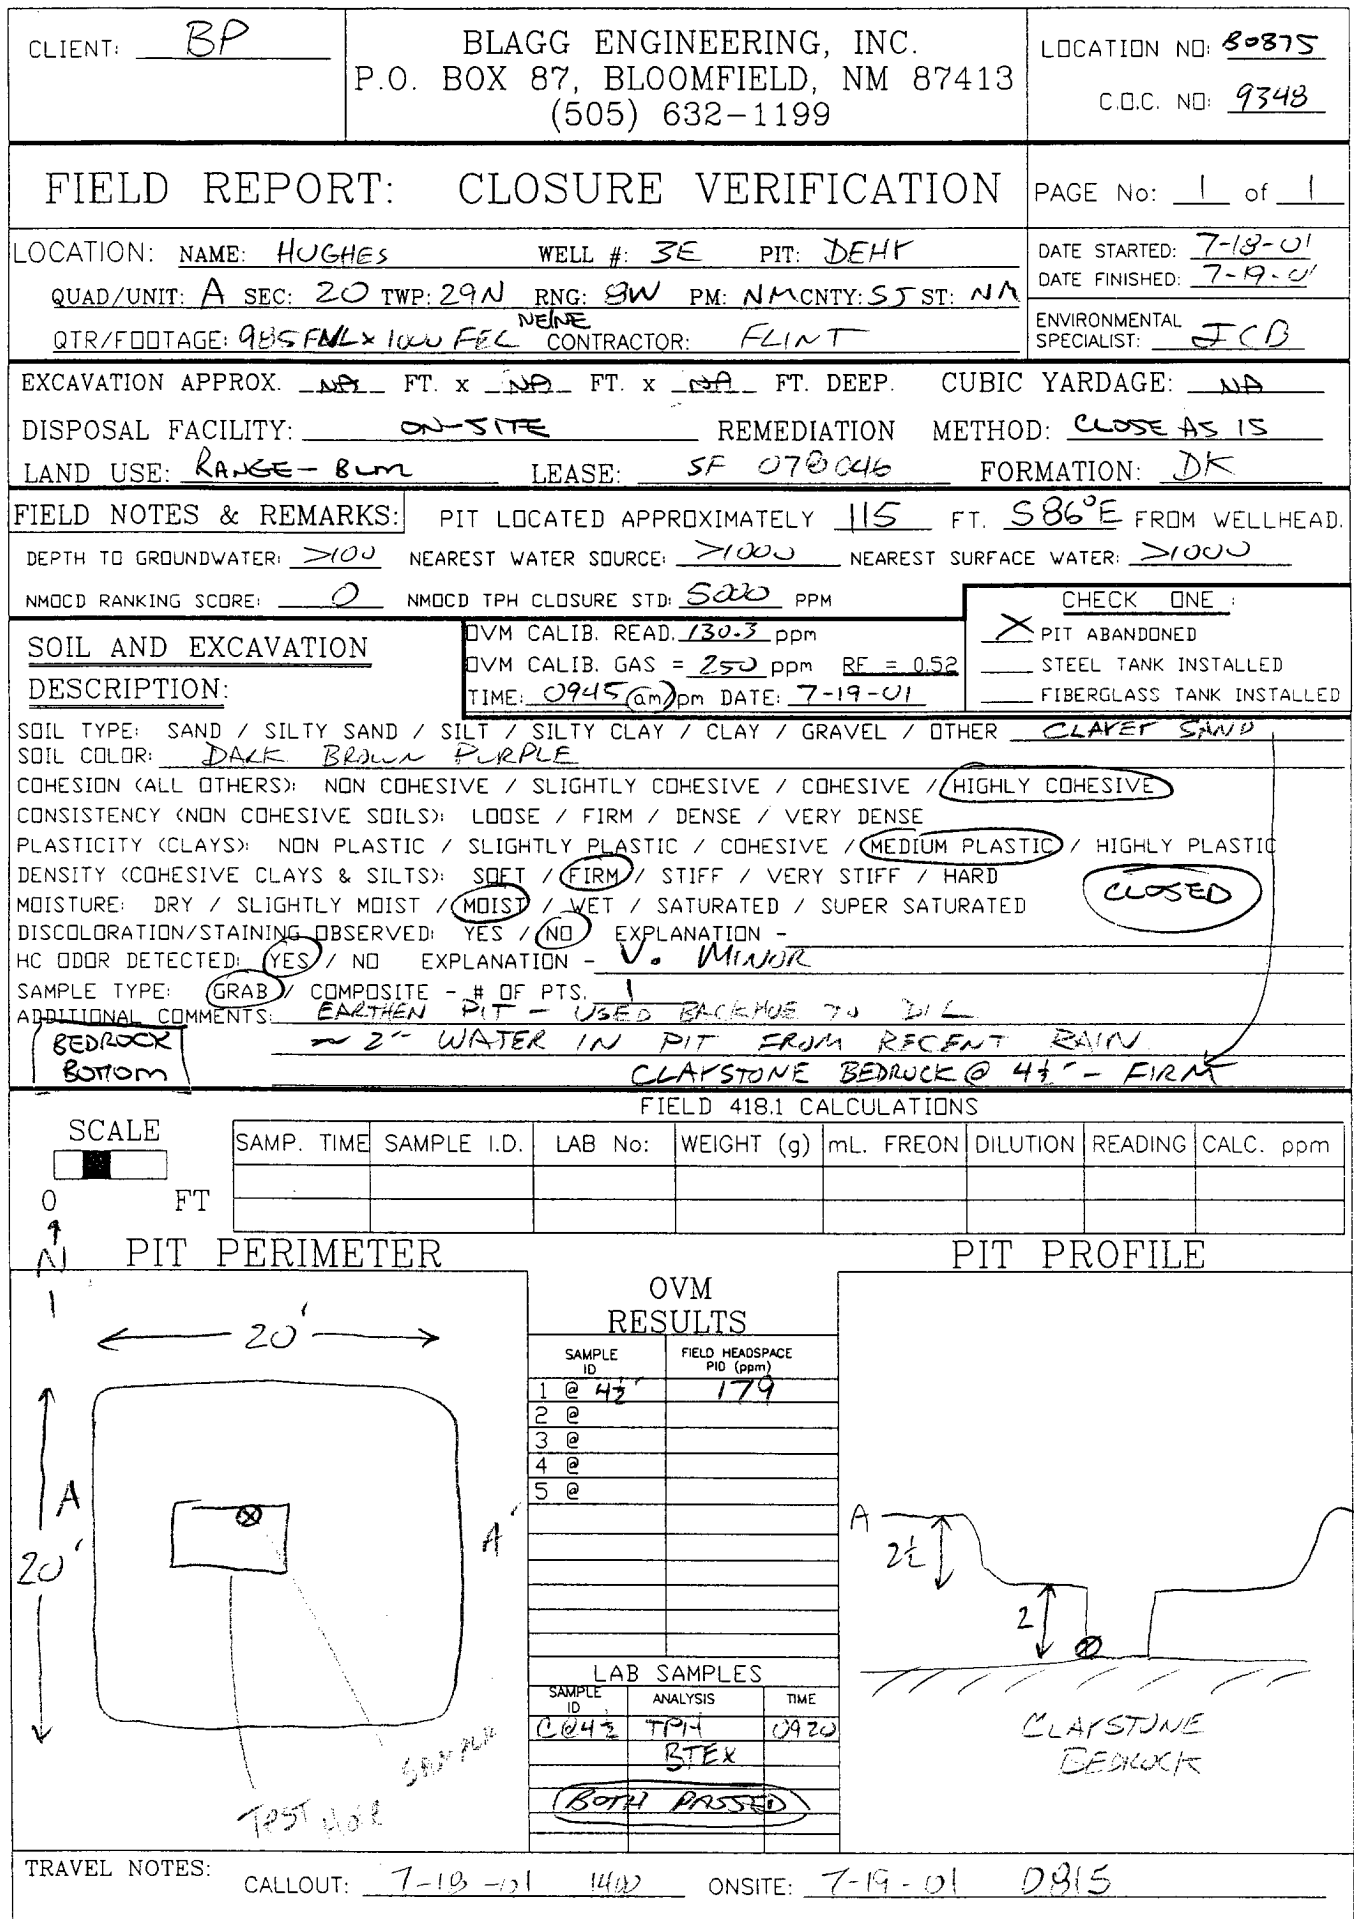 CLIENT: BP
BLAGG ENGINEERING, INC.
P.O. BOX 87, BLOOMFIELD, NM 87413
(505) 632-1199
LOCATION NO: B0875
C.O.C. NO: 9348
FIELD REPORT: CLOSURE VERIFICATION
PAGE No: 1 of 1
LOCATION: NAME: HUGHES WELL #: 3E PIT: DEHY
QUAD/UNIT: A SEC: 20 TWP: 29N RNG: 8W PM: NM CNTY: SJ ST: NM
QTR/FOOTAGE: 985 FNL x 1000 FEL NE/NE CONTRACTOR: FLINT
DATE STARTED: 7-18-01
DATE FINISHED: 7-19-01
ENVIRONMENTAL
SPECIALIST: JCB
EXCAVATION APPROX. NA FT. x NA FT. x NA FT. DEEP. CUBIC YARDAGE: NA
DISPOSAL FACILITY: ON-SITE REMEDIATION METHOD: CLOSE AS IS
LAND USE: RANGE - BLM LEASE: SF 078046 FORMATION: DK
FIELD NOTES & REMARKS: PIT LOCATED APPROXIMATELY 115 FT. S86°E FROM WELLHEAD.
DEPTH TO GROUNDWATER: >100 NEAREST WATER SOURCE: >1000 NEAREST SURFACE WATER: >1000
NMOCD RANKING SCORE: 0 NMOCD TPH CLOSURE STD: 5000 PPM
CHECK ONE :
X PIT ABANDONED
STEEL TANK INSTALLED
FIBERGLASS TANK INSTALLED
SOIL AND EXCAVATION
DESCRIPTION:
OVM CALIB. READ. 130.3 ppm
OVM CALIB. GAS = 250 ppm RF = 0.52
TIME: 0945 am/pm DATE: 7-19-01
SOIL TYPE: SAND / SILTY SAND / SILT / SILTY CLAY / CLAY / GRAVEL / OTHER CLAYEY SAND
SOIL COLOR: DARK BROWN PURPLE
COHESION (ALL OTHERS): NON COHESIVE / SLIGHTLY COHESIVE / COHESIVE / HIGHLY COHESIVE
CONSISTENCY (NON COHESIVE SOILS): LOOSE / FIRM / DENSE / VERY DENSE
PLASTICITY (CLAYS): NON PLASTIC / SLIGHTLY PLASTIC / COHESIVE / MEDIUM PLASTIC / HIGHLY PLASTIC
DENSITY (COHESIVE CLAYS & SILTS): SOFT / FIRM / STIFF / VERY STIFF / HARD
CLOSED
MOISTURE: DRY / SLIGHTLY MOIST / MOIST / WET / SATURATED / SUPER SATURATED
DISCOLORATION/STAINING OBSERVED: YES / NO EXPLANATION -
HC ODOR DETECTED: YES / NO EXPLANATION - V. MINOR
SAMPLE TYPE: GRAB / COMPOSITE - # OF PTS. 1
ADDITIONAL COMMENTS: EARTHEN PIT - USED BACKHOE TO DIG
~ 2" WATER IN PIT FROM RECENT RAIN
CLAYSTONE BEDROCK @ 4½' - FIRM
BEDROCK
BOTTOM
FIELD 418.1 CALCULATIONS
SCALE
0 FT
SAMP. TIME SAMPLE I.D. LAB No: WEIGHT (g) mL. FREON DILUTION READING CALC. ppm
N
PIT PERIMETER
PIT PROFILE
20'
A
20'
A'
TEST HOLE
SAMPLE
OVM
RESULTS
SAMPLE ID FIELD HEADSPACE PID (ppm)
1 @ 4½' 179
2 @
3 @
4 @
5 @
LAB SAMPLES
SAMPLE ID ANALYSIS TIME
C@4½ TPH 0920
BTEX
BOTH PASSED
A
2½
2
CLAYSTONE
BEDROCK
TRAVEL NOTES: CALLOUT: 7-18-01 1400 ONSITE: 7-19-01 0815